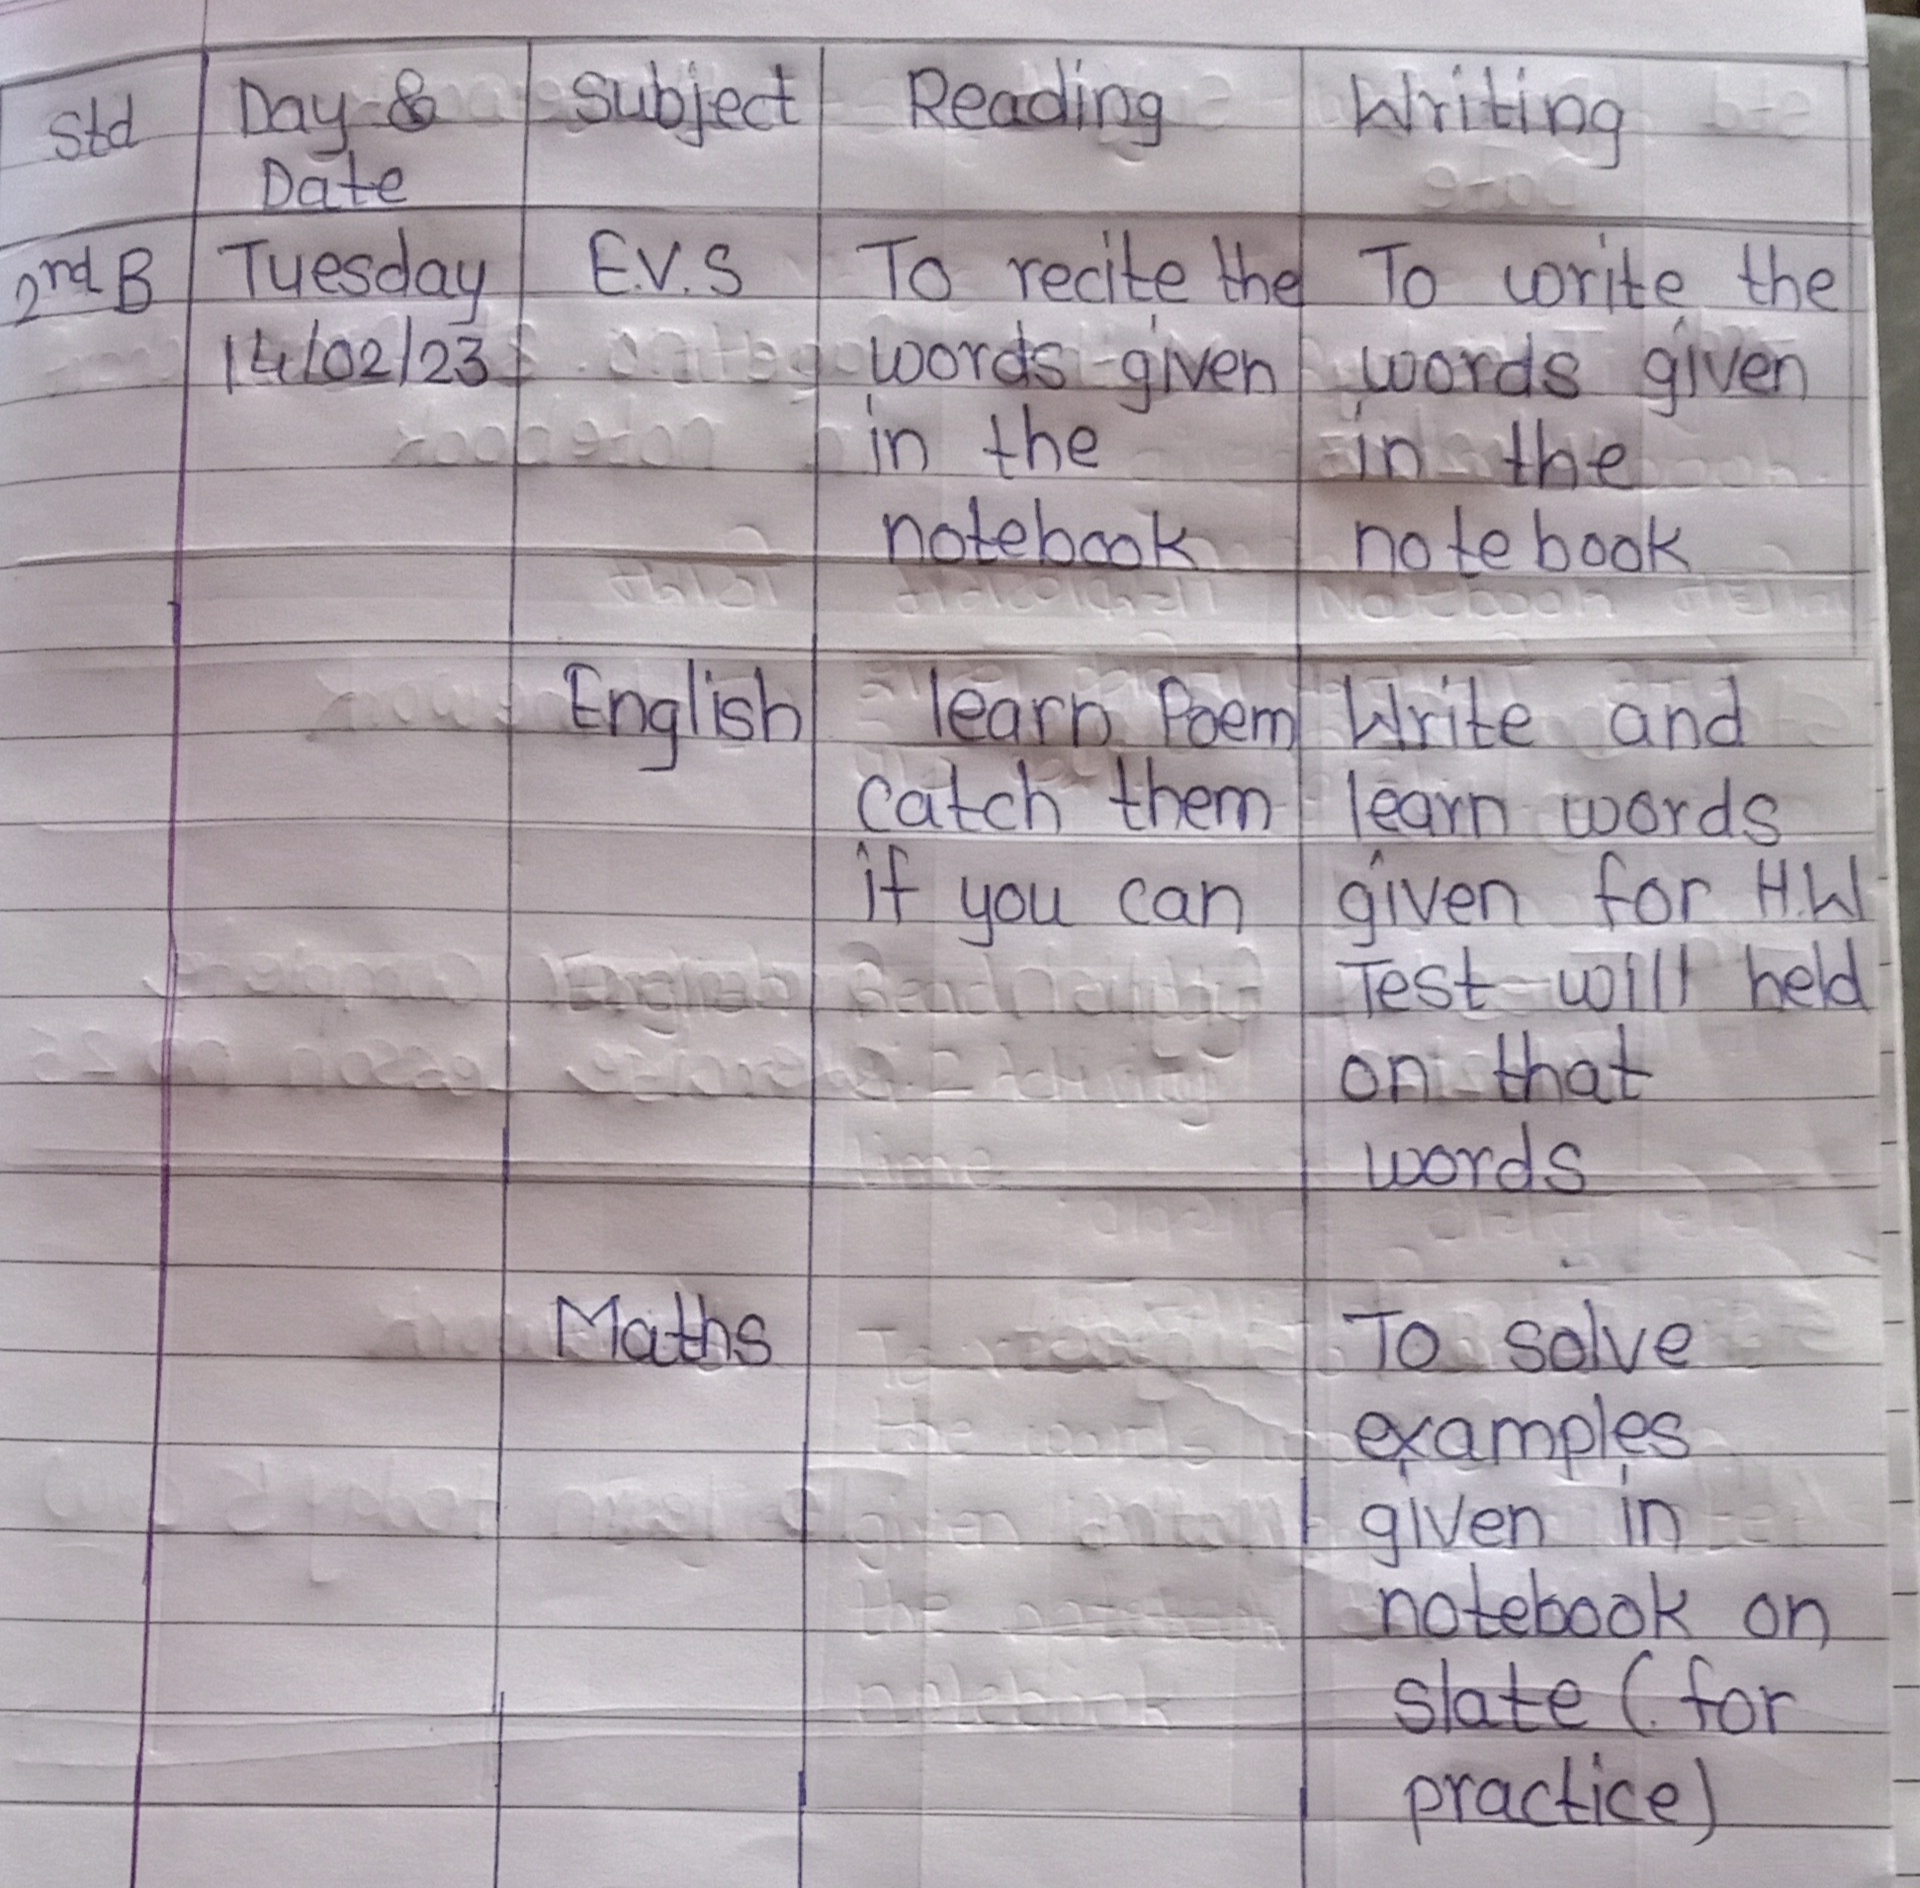 Std Day & Subject Reading Writing
Date
2nd B Tuesday E.V.S To recite the To write the
14/02/23 words given words given
in the in the
notebook notebook
English learn Poem Write and
Catch them learn words
if you can given for H.W
Test will held
on that
words
Maths To solve
examples
given in
notebook on
slate (for
practice)